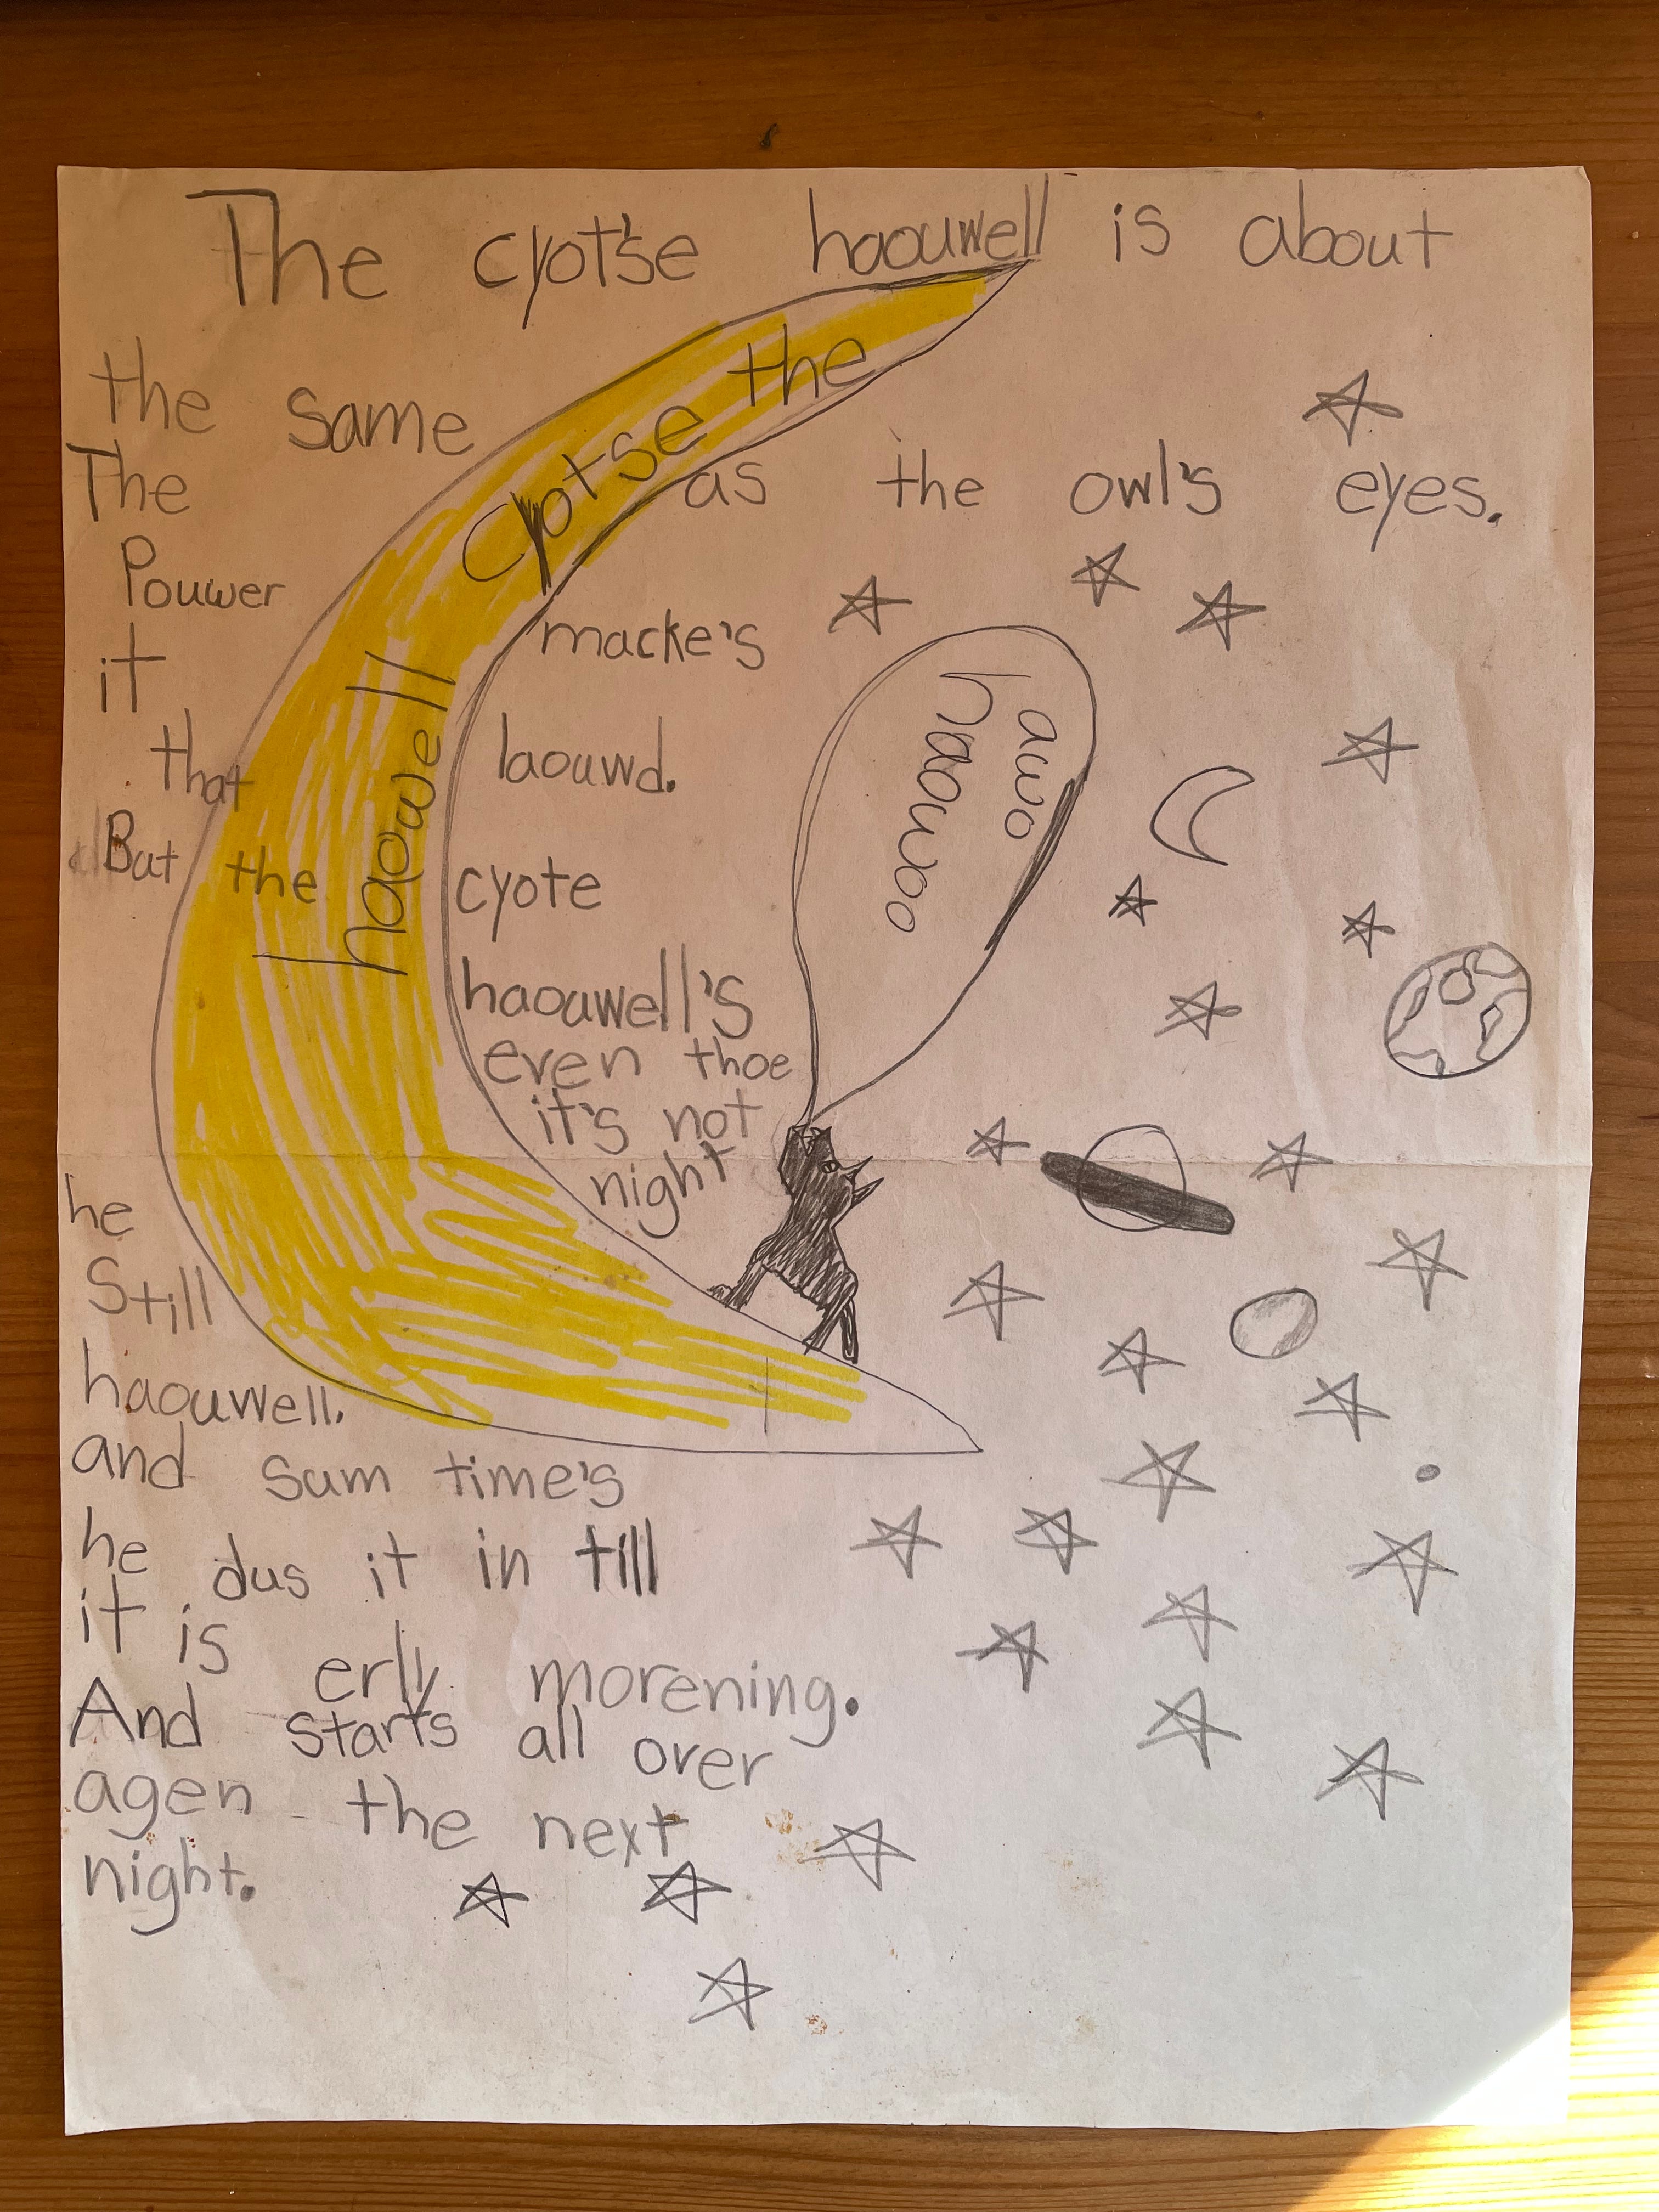 The cyot'se haouwell is about
the same as the owl's eyes.
The
Pouwer
it macke's
that laouwd.
But the cyote
haouwell's
even thoe
it's not
night
he
Still
haouwell.
and sum time's
he dus it in till
it is erly morening.
And starts all over
agen the next
night.
Cyotse the
haowell
hawo
haouwoo